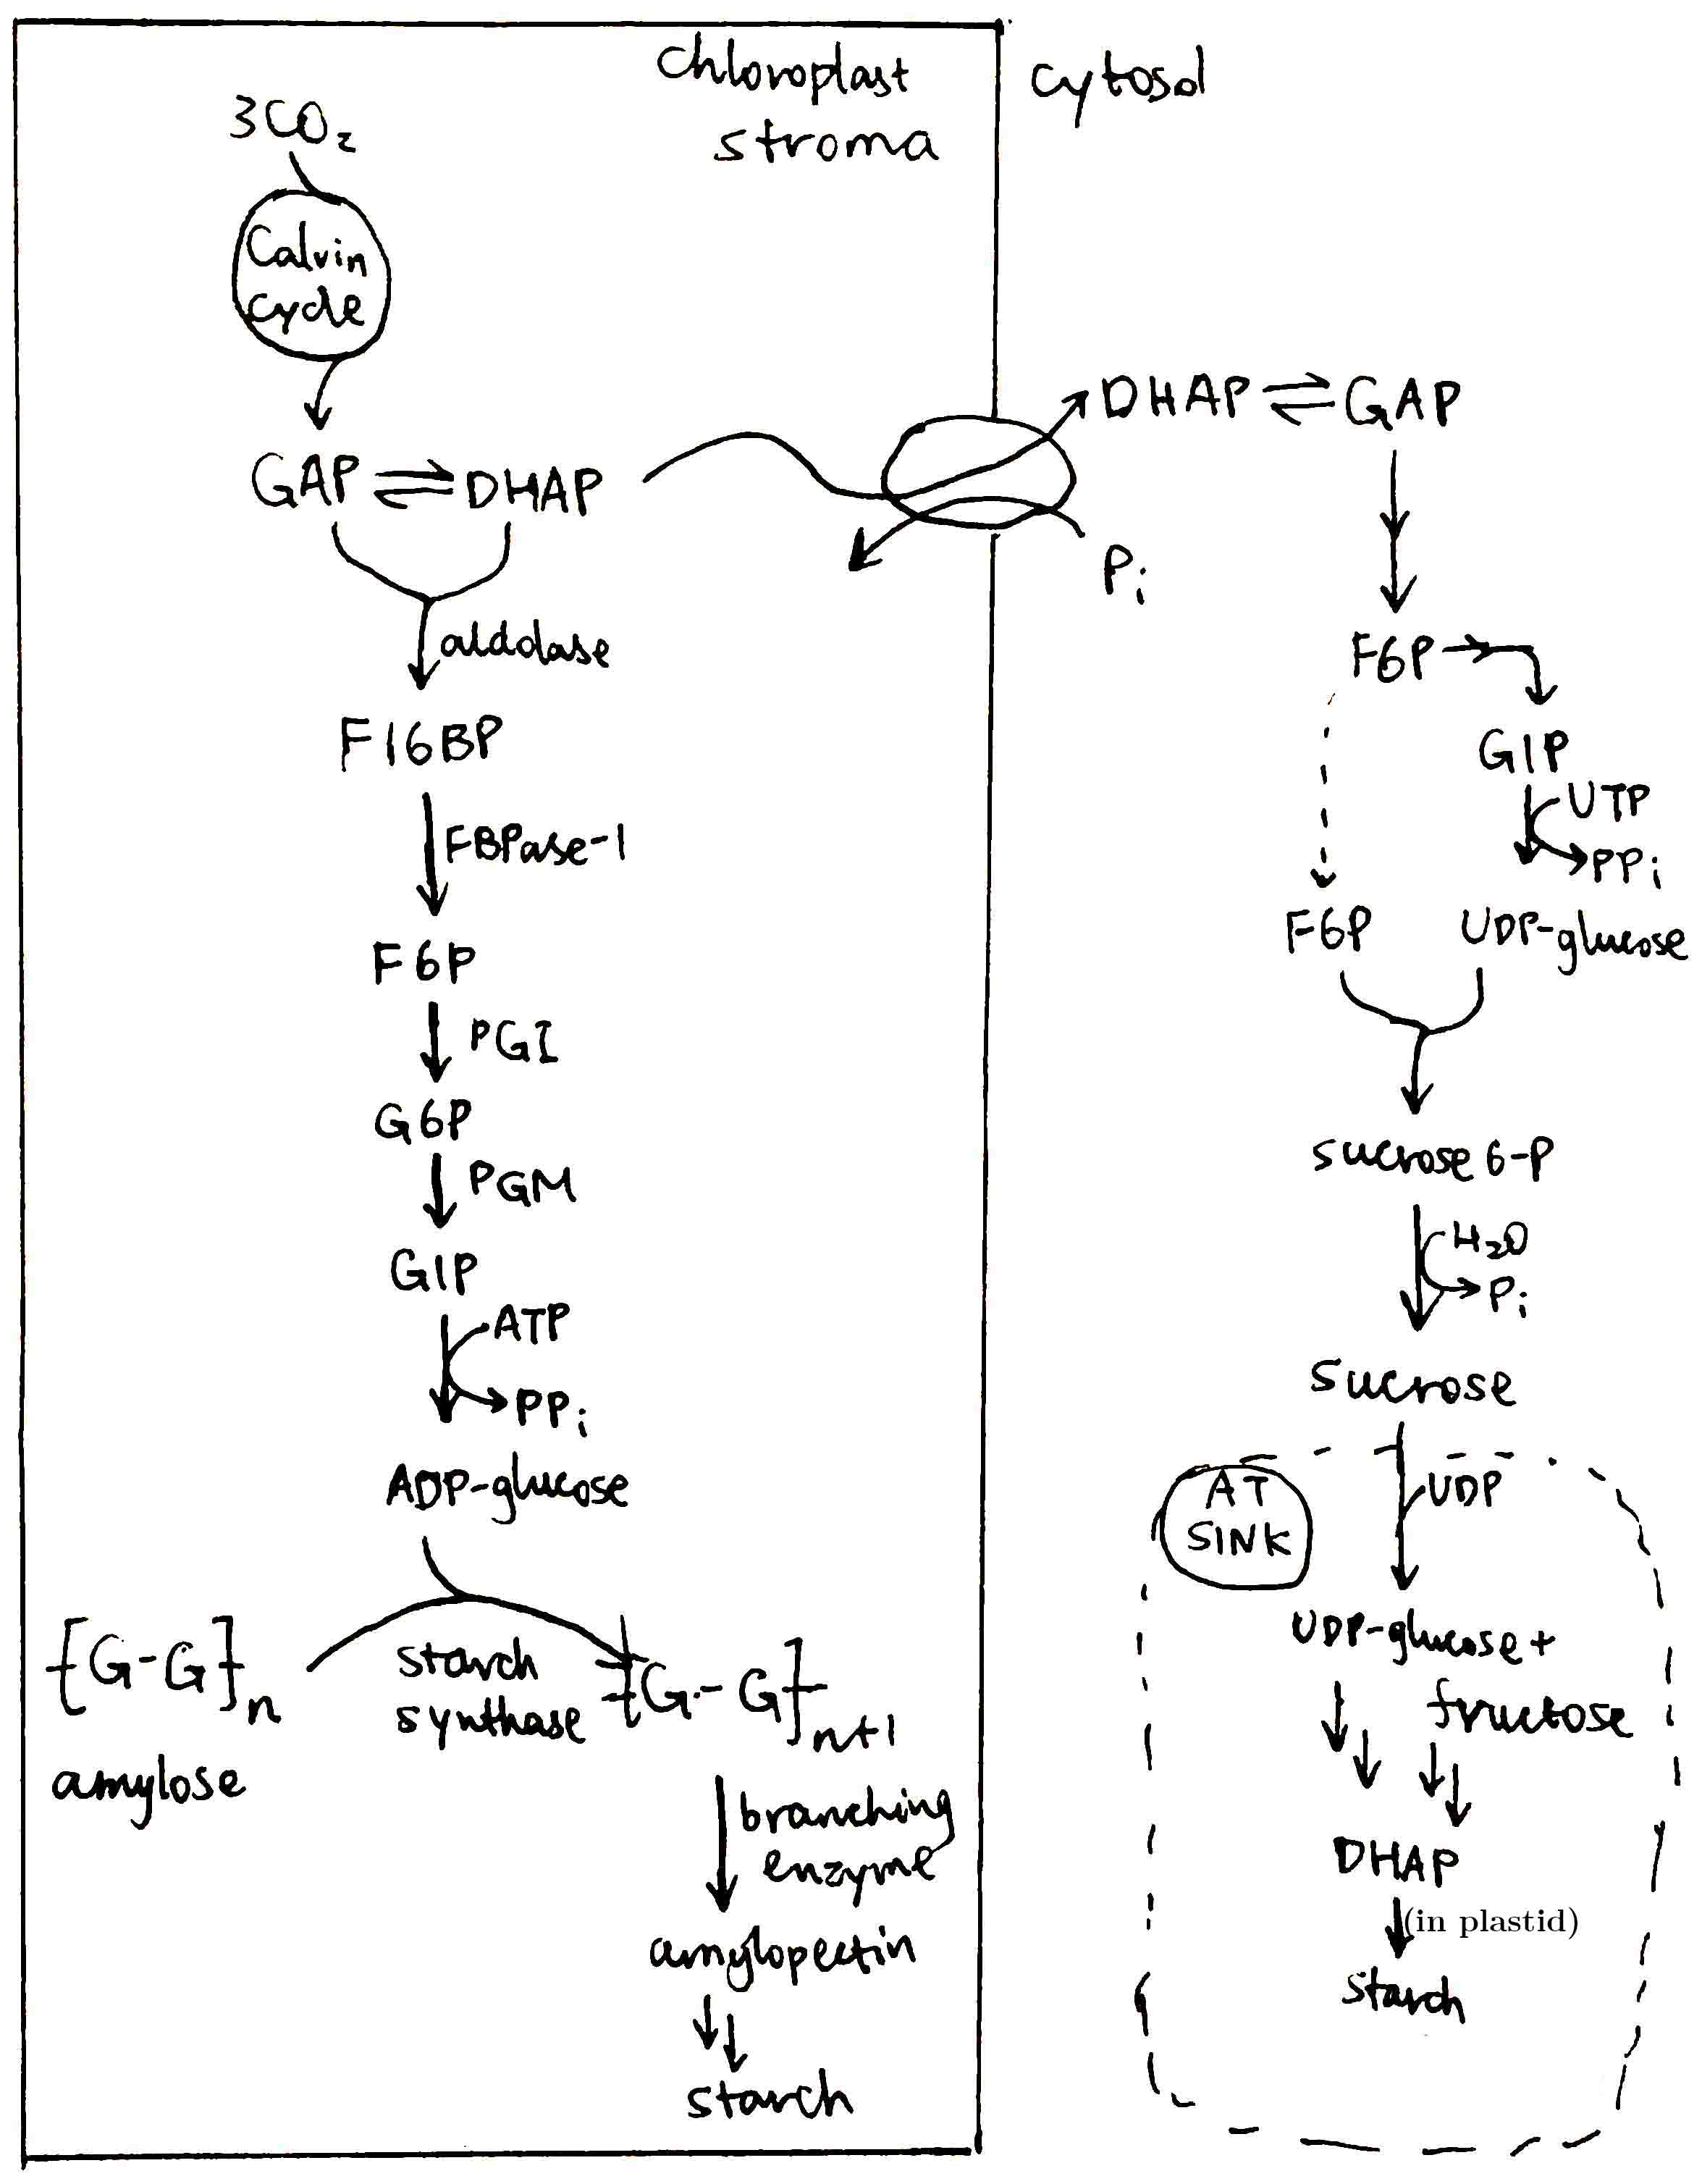 chloroplast
stroma
cytosol
3CO₂
Calvin
cycle
GAP ⇌ DHAP
DHAP ⇌ GAP
Pi
aldolase
F16BP
FBPase-1
F6P
PGI
G6P
PGM
G1P
ATP
PPi
ADP-glucose
[G-G]n
amylose
starch
synthase
[G-G]n+1
branching
enzyme
amylopectin
starch
F6P
G1P
UTP
PPi
F6P
UDP-glucose
sucrose 6-P
H₂O
Pi
sucrose
AT
SINK
UDP
UDP-glucose +
fructose
DHAP
(in plastid)
starch